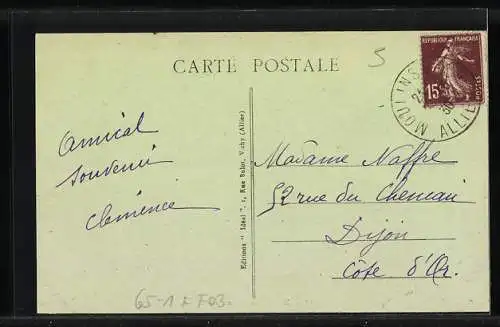 5
CARTE POSTALE
REPUBLIQUE FRANÇAISE
15
POSTES
MOULINS
ALLIER
Amical
souvenir
Clémence
Editions " Idéal ", 1, Rue Vichy (Allier)
Madame Naffre
52 rue du
Dijon
Côte d'Or.
65-1